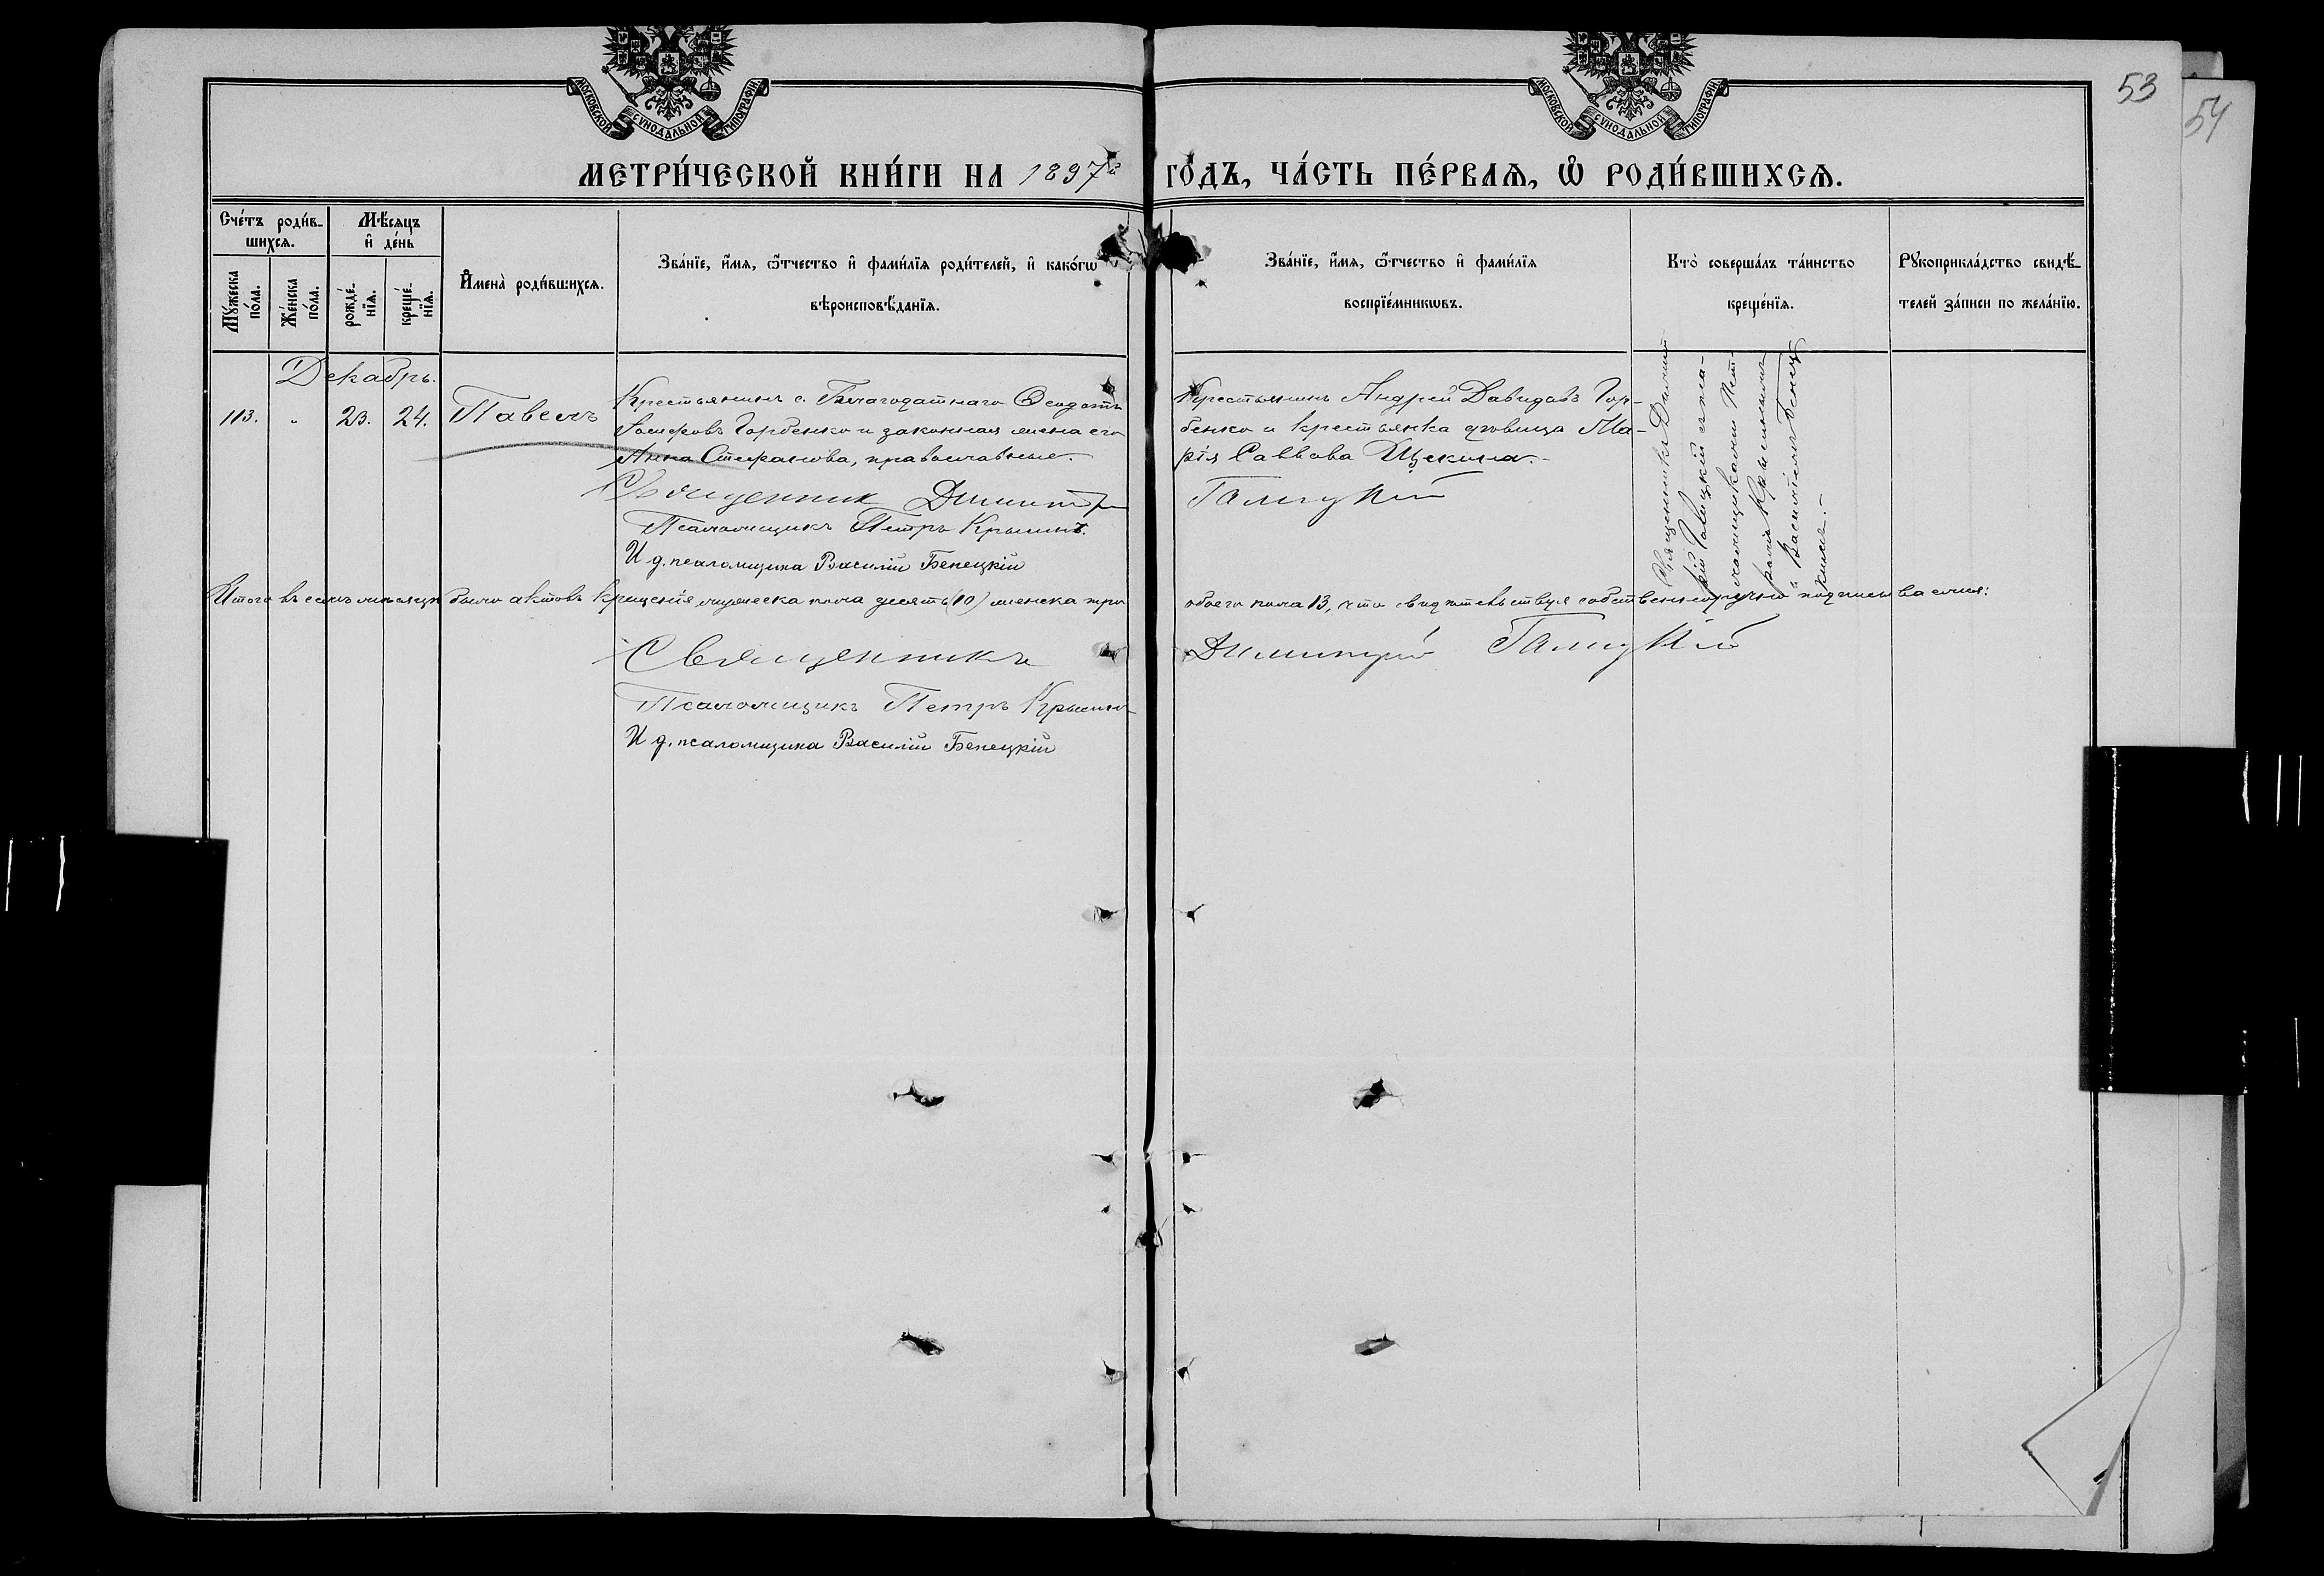 53
54
МОСКОВСКОЙ СѴНОДАЛЬНОЙ ТИПОГРАФІИ.
МОСКОВСКОЙ СѴНОДАЛЬНОЙ ТИПОГРАФІИ.
МЕТРИ́ЧЕСКОЙ КНИ́ГИ НА 1897й ГО́ДЪ, ЧА́СТЬ ПЕ́РВАѦ, Ѡ҆ РОДИ́ВШИХСѦ.
Сче́тъ роди́в-
шихсѧ.
Мꙋ́жеска
по́ла.
Же́нска
по́ла.
Мѣ́сѧцъ
и҆ де́нь
рожде́-
нїѧ.
креще́-
нїѧ.
И҆мена̀ роди́вшихсѧ.
Зва́нїе, и҆́мѧ, ѻ҆́тчество и҆ фами́лїѧ роди́телей, и҆ како́гѡ
вѣроисповѣ́данїѧ.
Зва́нїе, и҆́мѧ, ѻ҆́тчество и҆ фами́лїѧ
воспрїе́мникѡвъ.
Кто̀ соверша́лъ та́инство
креще́нїѧ.
Рꙋкоприкла́дство свидѣ́-
телей за́писи по жела́нїю.
Декабрь.
113. „ 23. 24. Павелъ
Крестьянинъ с. Благодатнаго Ѳеодотъ
Іосифовъ Горбенко и законная жена его
Анна Стефанова, православные.
Священник Димитрій
Псаломщикъ Петръ Крыжинъ.
И д. псаломщика Василій Бенецкій
Крестьянинъ Андрей Давидовъ Гор-
бенко и крестьянка дѣвица Ма-
рія Саввова Щекина.
Галицкій
Священникъ Димит-
рій Галицкій съ пса-
ломщиками Пет-
ромъ
и Василіемъ Бенец-
кимъ.
Итого въ семъ мѣсяцѣ было актовъ крещенія мужеска пола десять (10) женска три обоего пола 13, что свидѣтельствуя собственноручно подписываемся:
Священникъ Димитрій Галицкій
Псаломщикъ Петръ Крыжинъ
И д. псаломщика Василій Бенецкій